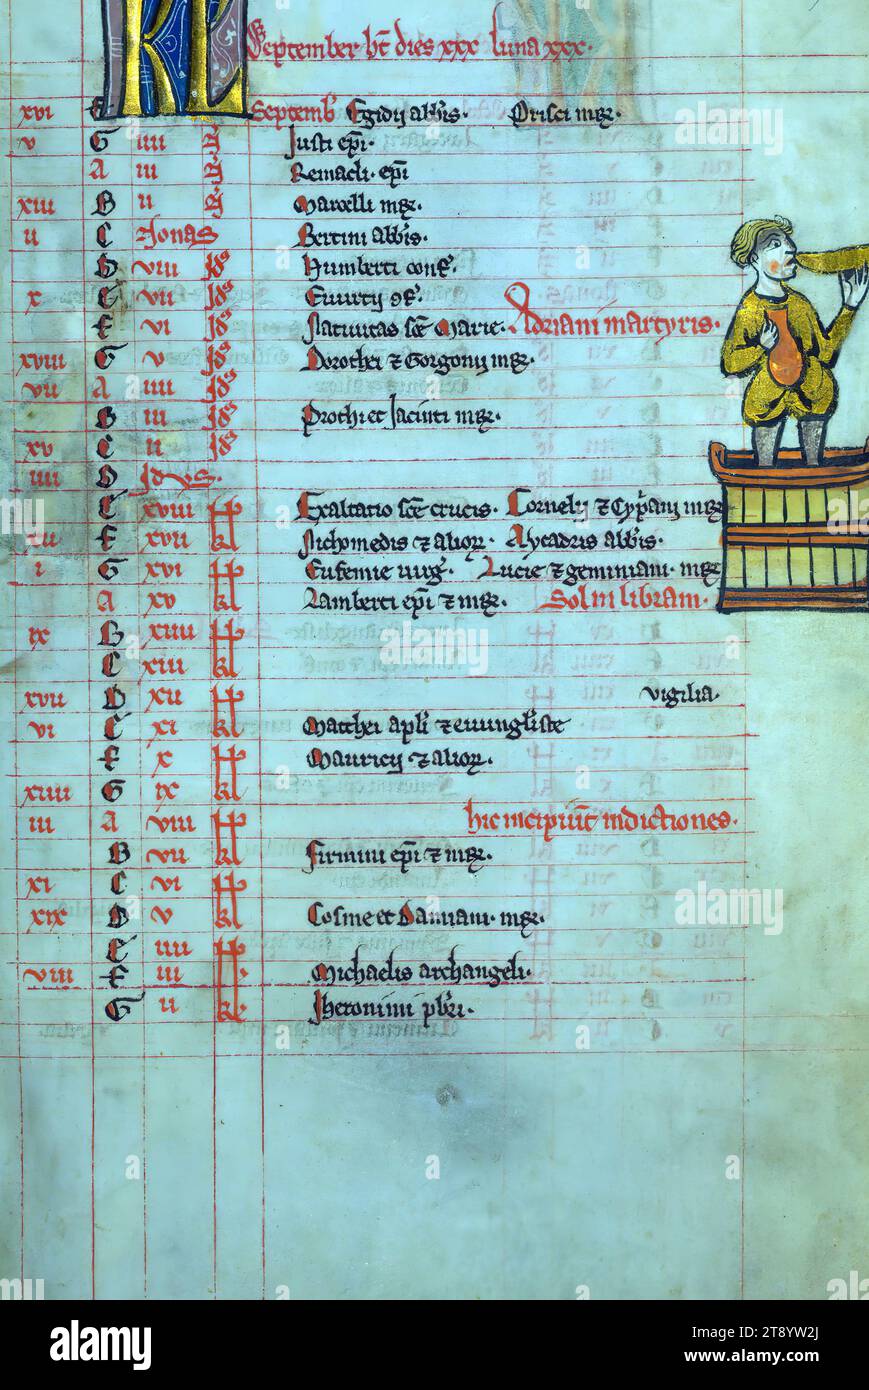 KL
September ht dies xxx luna xxx.
xvi F Septemb' Egidij abb'is. Prisci mr.
v G iiii N Iusti ep'i.
A iii N Remacli. ep'i
xiii B ii N Marcelli mr.
ii C Nonas Bertini abb'is.
D viii Ids Humberti conf'.
x E vii Ids Euurtij 9f'.
F vi Ids Natiuitas sce Marie. Adriani martyris.
xviii G v Ids Dorothei & Gorgonij mr.
vii A iiii Ids
B iii Ids Prothi et Iacinti mr.
xv C ii Ids
iiii D Idus.
E xviii kl Exaltatio sce crucis. Cornelij & Cyp'ani mr
xii F xvii kl Nichomedis & alior. Aycadris abb'is.
i G xvi kl Eufemie uirg'. Lucie & geminiani. mr
A xv kl Lamberti ep'i & mr. Sol in libram.
ix B xiiii kl
C xiii kl
xvii D xii kl vigilia.
vi E xi kl Mathei ap'li & euuangl'iste
F x kl Mauricij & alior.
xiiii G ix kl
iii A viii kl hic incipiunt indictiones.
B vii kl Firmini ep'i & mr.
xi C vi kl
xix D v kl Cosme et Damiani. mr.
E iiii kl
viii F iii kl Michaelis archangeli.
G ii kl Iheronimi pb'ri.
alamy
Image ID: 2T81YW2J
www.alamy.com